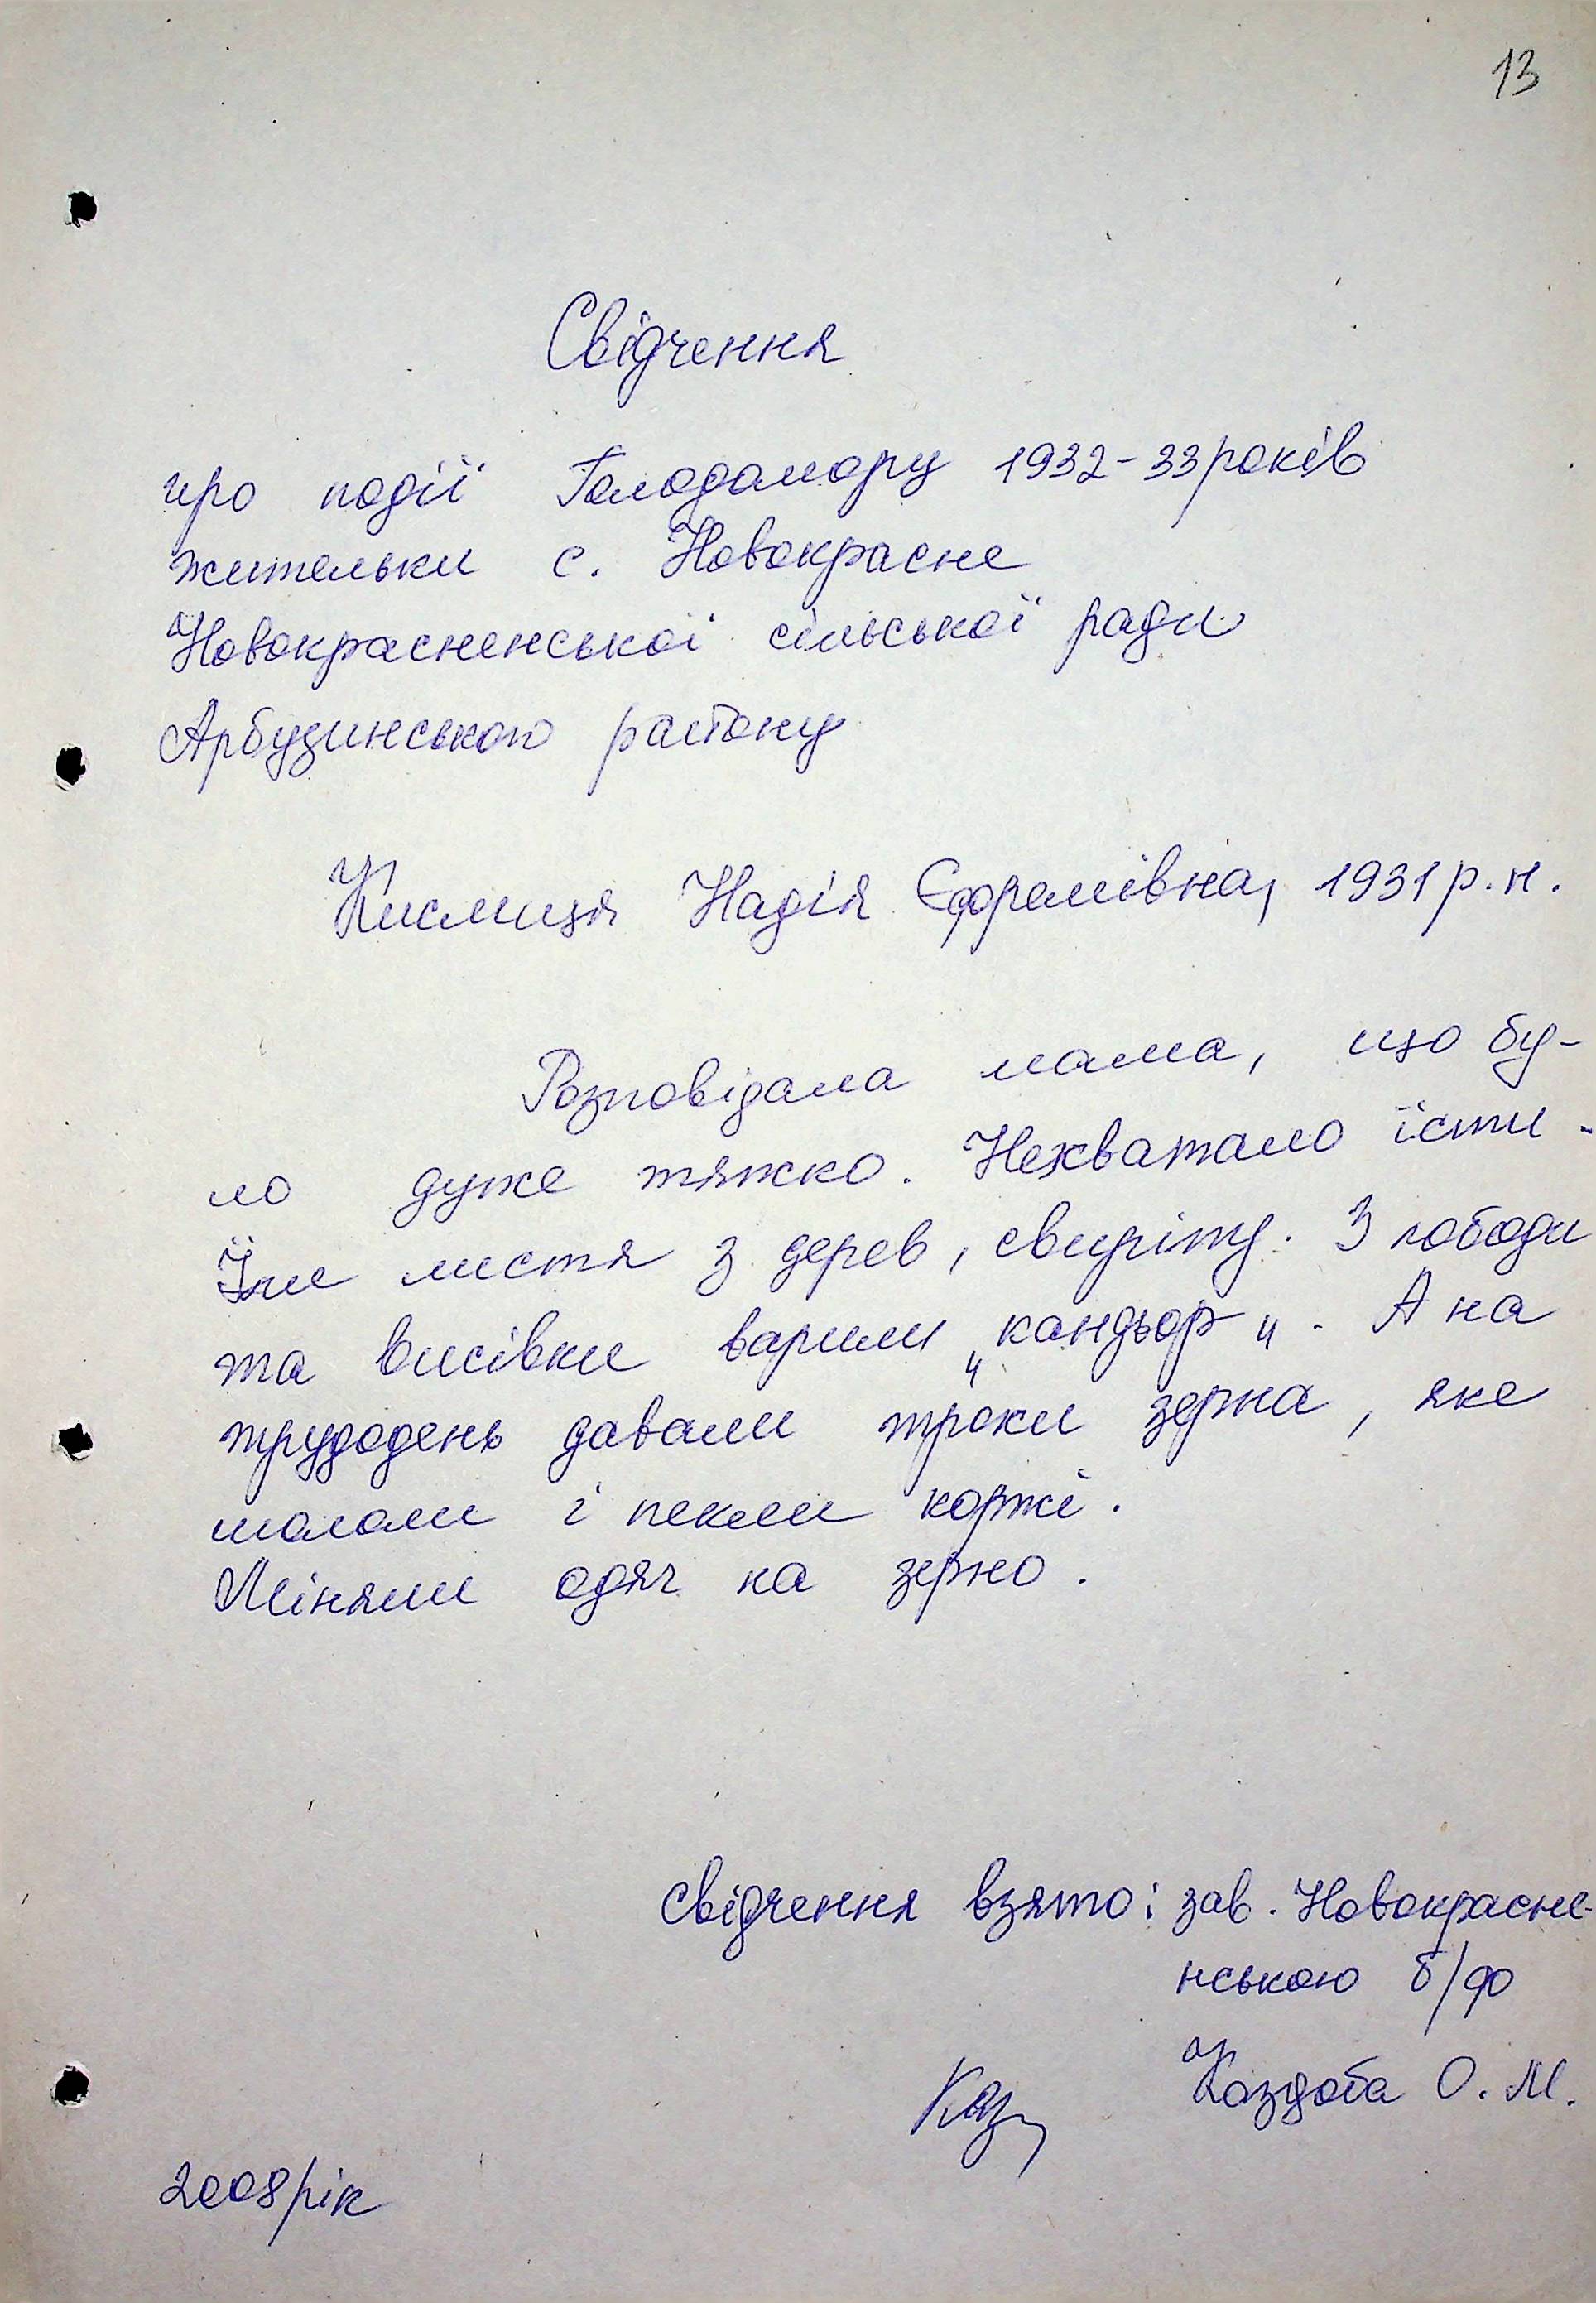 13
Свідчення
про події Голодомору 1932-33 років
жительки с. Новокрасне
Новокрасненської сільської ради
Арбузинського району
Кислиця Надія Єфремівна, 1931 р. н.
Розповідала мама, що бу-
ло дуже тяжко. Нехватало їсти.
Їли листя з дерев, свиріпу. З лободи
та висівки варили „кандьор". А на
трудодень давали троки зерна, яке
мололи і пекли коржі.
Міняли одяг на зерно.
Свідчення взято: зав. Новокрасне-
нською б/ф
Каздоба О. М.
2008 рік